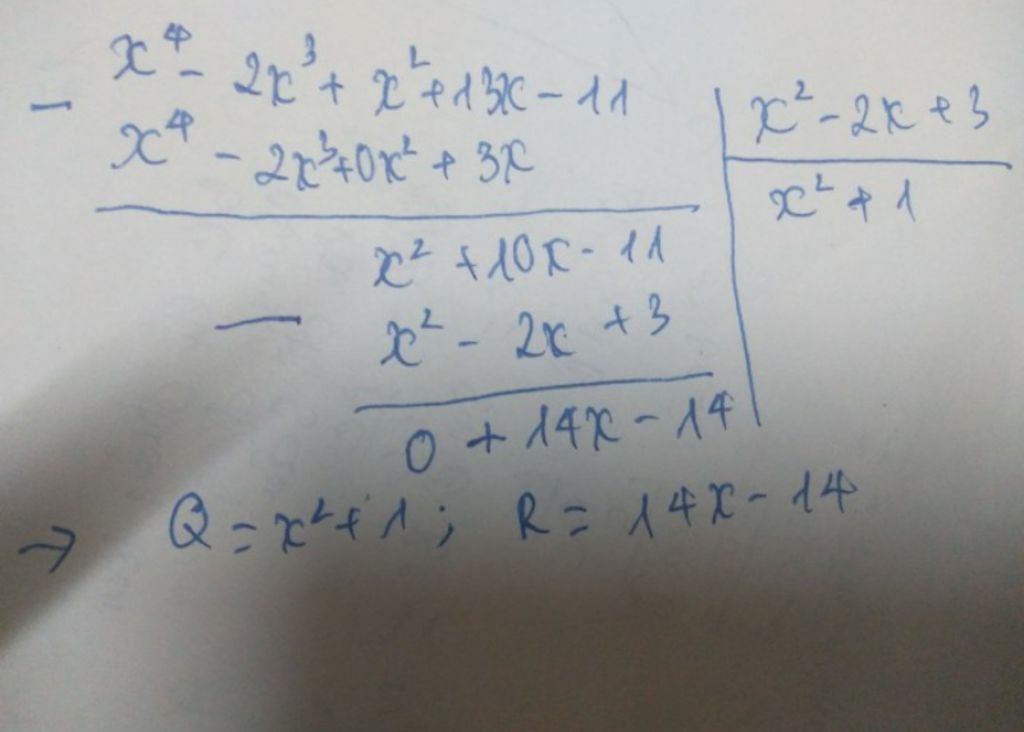 x⁴ - 2x³ + x² + 13x - 11
- x² - 2x + 3
x⁴ - 2x³ + 0x² + 3x
x² + 1
x² + 10x - 11
-
x² - 2x + 3
12x - 14
0 + 14x - 14
→ Q = x² + 1 ; R = 14x - 14